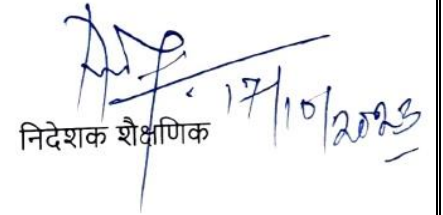 17/10/2023
निदेशक शैक्षणिक